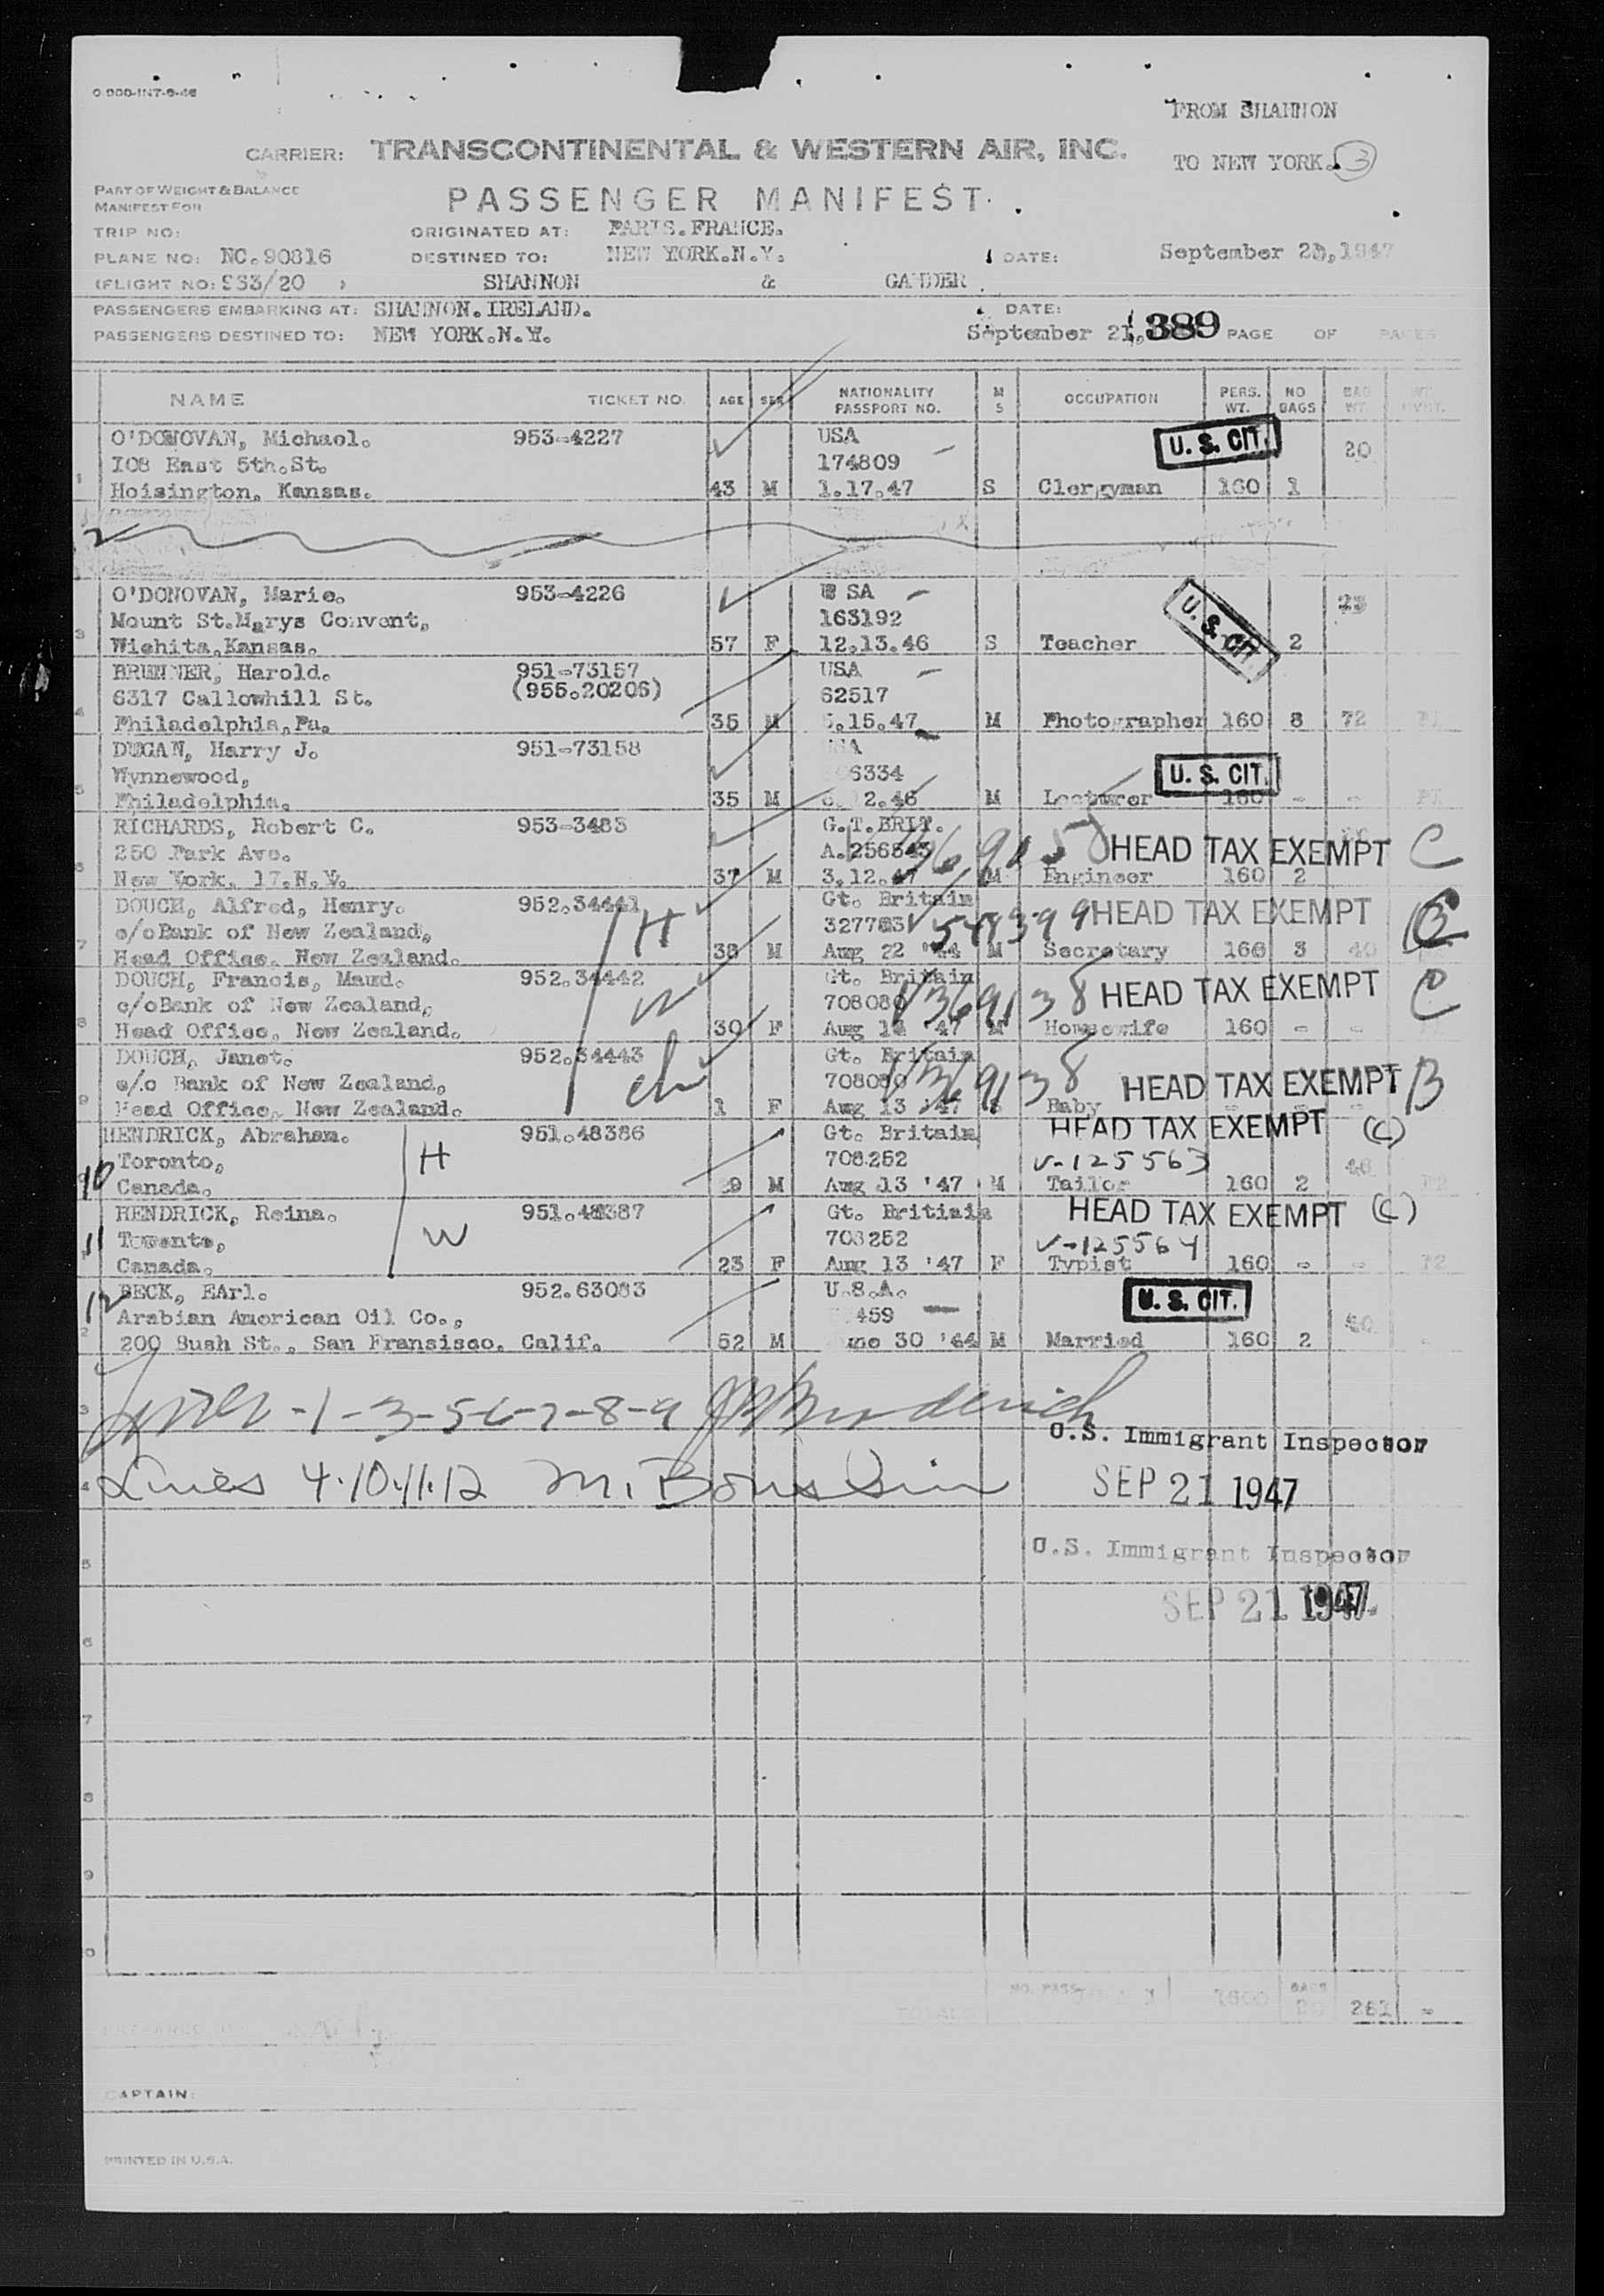 O-900-INT-6-46
FROM SHANNON
CARRIER: TRANSCONTINENTAL & WESTERN AIR, INC.
TO NEW YORK. 3
PART OF WEIGHT & BALANCE
MANIFEST FOR
PASSENGER MANIFEST.
TRIP NO: ORIGINATED AT: PARIS.FRANCE.
PLANE NO: NC.90816 DESTINED TO: NEW YORK.N.Y. DATE: September 1947
(FLIGHT NO: 963/20 ) SHANNON & GANDER
PASSENGERS EMBARKING AT: SHANNON.IRELAND. DATE:
PASSENGERS DESTINED TO: NEW YORK.N.Y. September 21, 389 PAGE OF PAGES
NAME TICKET NO. AGE SEX NATIONALITY PASSPORT NO. M S OCCUPATION PERS. WT. NO BAGS BAG WT.
O'DONOVAN, Michael. 953-4227 USA U. S. CIT. 20
108 East 5th.St. 174809
1 Hoisington, Kansas. 43 M 1.17.47 S Clergyman 160 1
2
O'DONOVAN, Marie. 953-4226 USA U. S. CIT. 23
Mount St.Marys Convent, 163192
3 Wichita,Kansas. 57 F 12.13.46 S Teacher 2
BRUNNER, Harold. 951-73157 USA
6317 Callowhill St. (955.20206) 62517
4 Philadelphia,Pa. 35 M .15.47 M Photographer 160 8 72
DUGAN, Harry J. 951-73158
Wynnewood, 6334 U. S. CIT.
5 Philadelphia. 35 M 12.46 M Lecturer 160 - -
RICHARDS, Robert C. 953-3483 G.T.BRIT.
250 Park Ave. HEAD TAX EXEMPT C
6 New York. 17.N.Y. 37 M 3.12.47 M Engineer 160 2
DOUCH, Alfred, Henry. 952.34441 Gt. Britain
c/oBank of New Zealand, H 548399 HEAD TAX EXEMPT B
7 Head Office. New Zealand. 38 M Aug 22 '44 M Secretary 160 3 40
DOUCH, Francis, Maud. 952.34442 Gt. Britain
c/oBank of New Zealand, W 708080 V369138 HEAD TAX EXEMPT C
8 Head Office. New Zealand. 30 F Aug 13 '47 M Housewife 160 - -
DOUCH, Janet. 952.34443 Gt. Britain
c/o Bank of New Zealand, ch 708080 V369138 HEAD TAX EXEMPT B
9 Head Office, New Zealand. 1 F Aug 13 '47 S Baby
HENDRICK, Abraham. 951.48386 Gt. Britain HEAD TAX EXEMPT (C)
Toronto, H 708252 V-125563
10 Canada. M Aug 13 '47 M Tailor 160 2
HENDRICK, Reina. 951.48387 Gt. Britiain HEAD TAX EXEMPT (C)
Toronto, W 708252 V-125564
11 Canada. 23 F Aug 13 '47 F Typist 160 - -
12 BECK, EArl. 952.63083 U.S.A. U. S. CIT.
Arabian American Oil Co., 459
200 Bush St., San Fransisco. Calif. 52 M June 30 '44 M Married 160 2
Lines -1-3-5-6-7-8-9
U.S. Immigrant Inspector
Lines 4.10.11.12 SEP 21 1947
U.S. Immigrant Inspector
SEP 21 1947
TOTALS NO. PASS. 1600 BAGS 261 -
CAPTAIN:
PRINTED IN U.S.A.